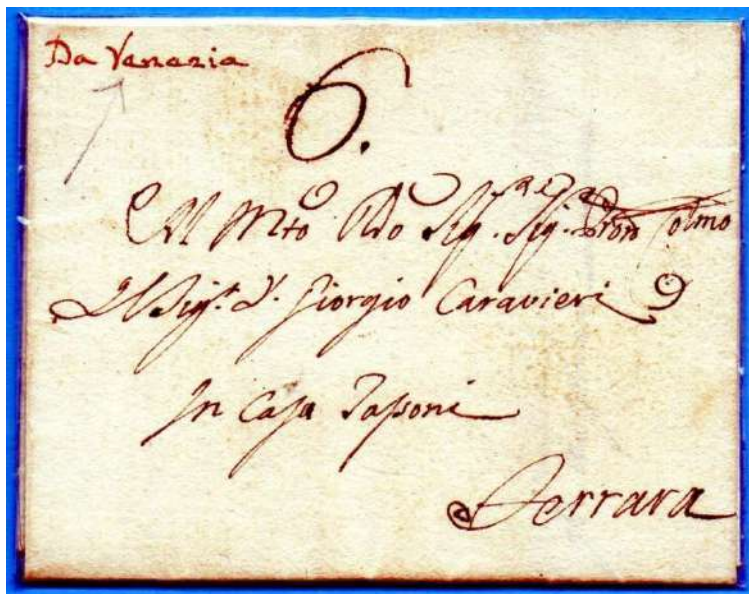 Da Venezia
6.
Al Mto Rdo Sigr. Sigr. Pron Colmo
Il Sigr. D. Giorgio Caravieri
In Casa Tassoni
Ferrara